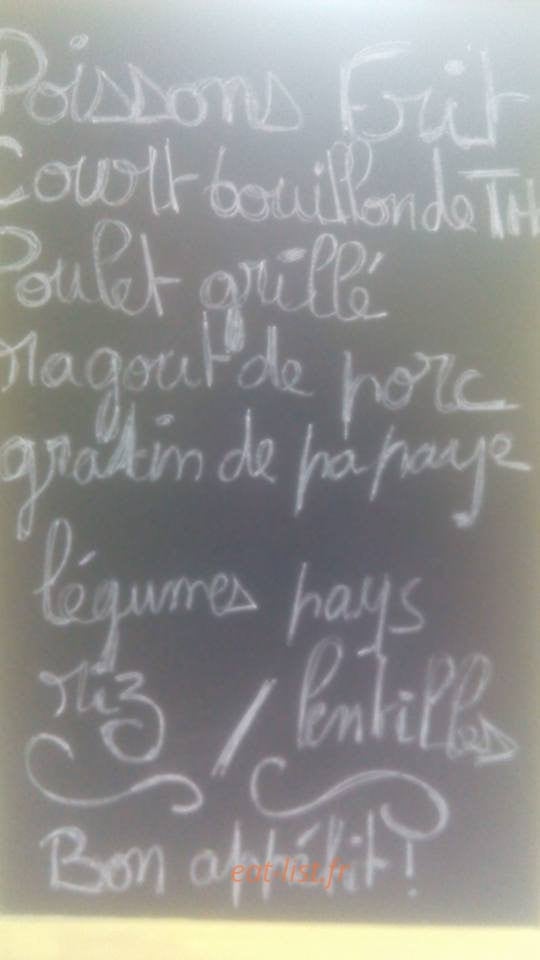 Poissons Frit
Court bouillon de TH
Poulet grillé
ragout de porc
gratin de papaye
légumes pays
riz / lentilles
Bon appétit!
eat-list.fr